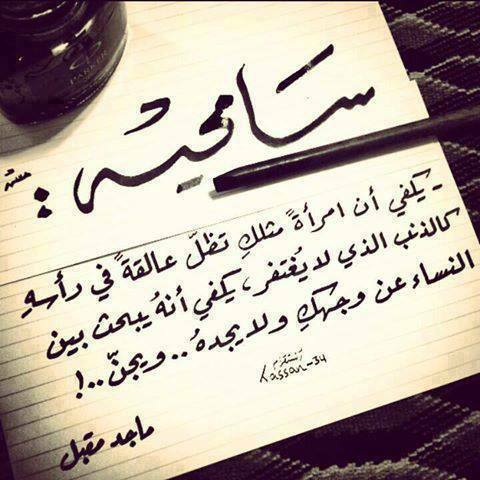 PARKER
سامحيه :
- يكفي أن امرأةً مثلكِ تظلّ عالقةً في رأسهِ
كالذنب الذي لا يُغتفر، يكفي أنهُ يبحث بين
النساء عن وجهكِ ولا يجدهُ .. ويجنّ ..!
انستقرام
hassan-34
ماجد مقبل